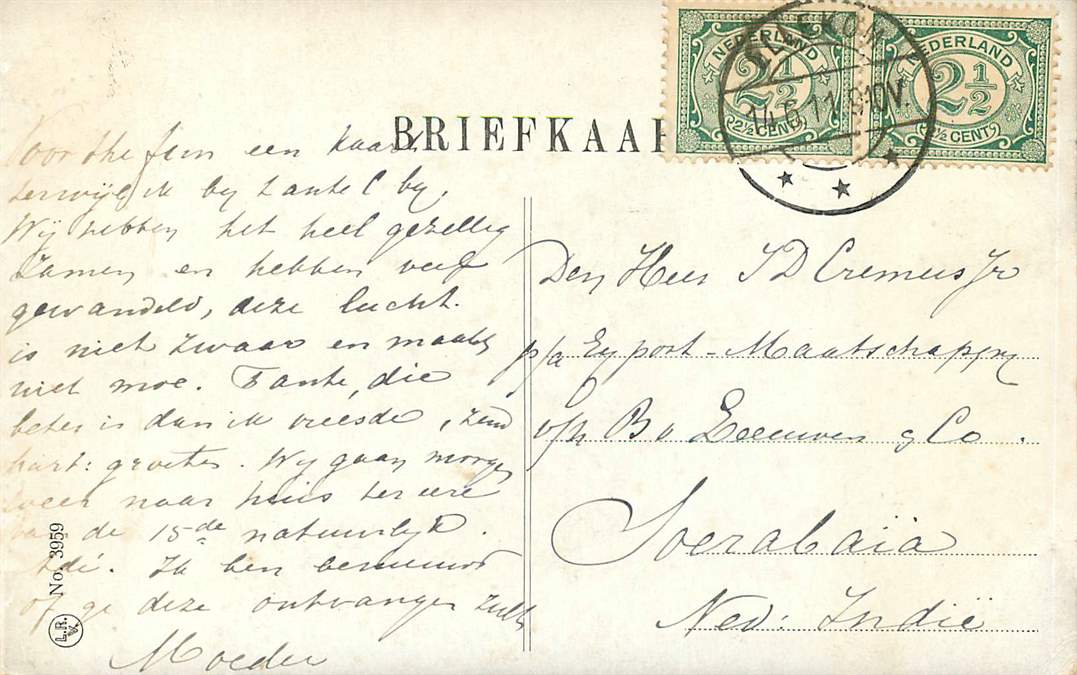 BRIEFKAAR
NEDERLAND
2½
2½ CENT
NEDERLAND
2½
2½ CENT
14.6.11.
10V.
een kaart
terwijl ik by tante C by.
Wij hebben het heel gezellig
zamen en hebben veel
gewandeld, deze lucht
is niet zwaar en maakt
niet moe. Tante, die
beter is dan ik vreesde, zend
hart: groeten. Wij gaan morgen
weer naar huis ter eere
van de 15de natuurlijk.
Adi. Ik ben benieuwd
of ge deze ontvangen zult
Moeder
Den Heer J D Cremers Jr
p/a Export-Maatschappy
v/h B v Leeuwen & Co.
Soerabaia
Ned: Indië
No. 3959
L.R.
V.